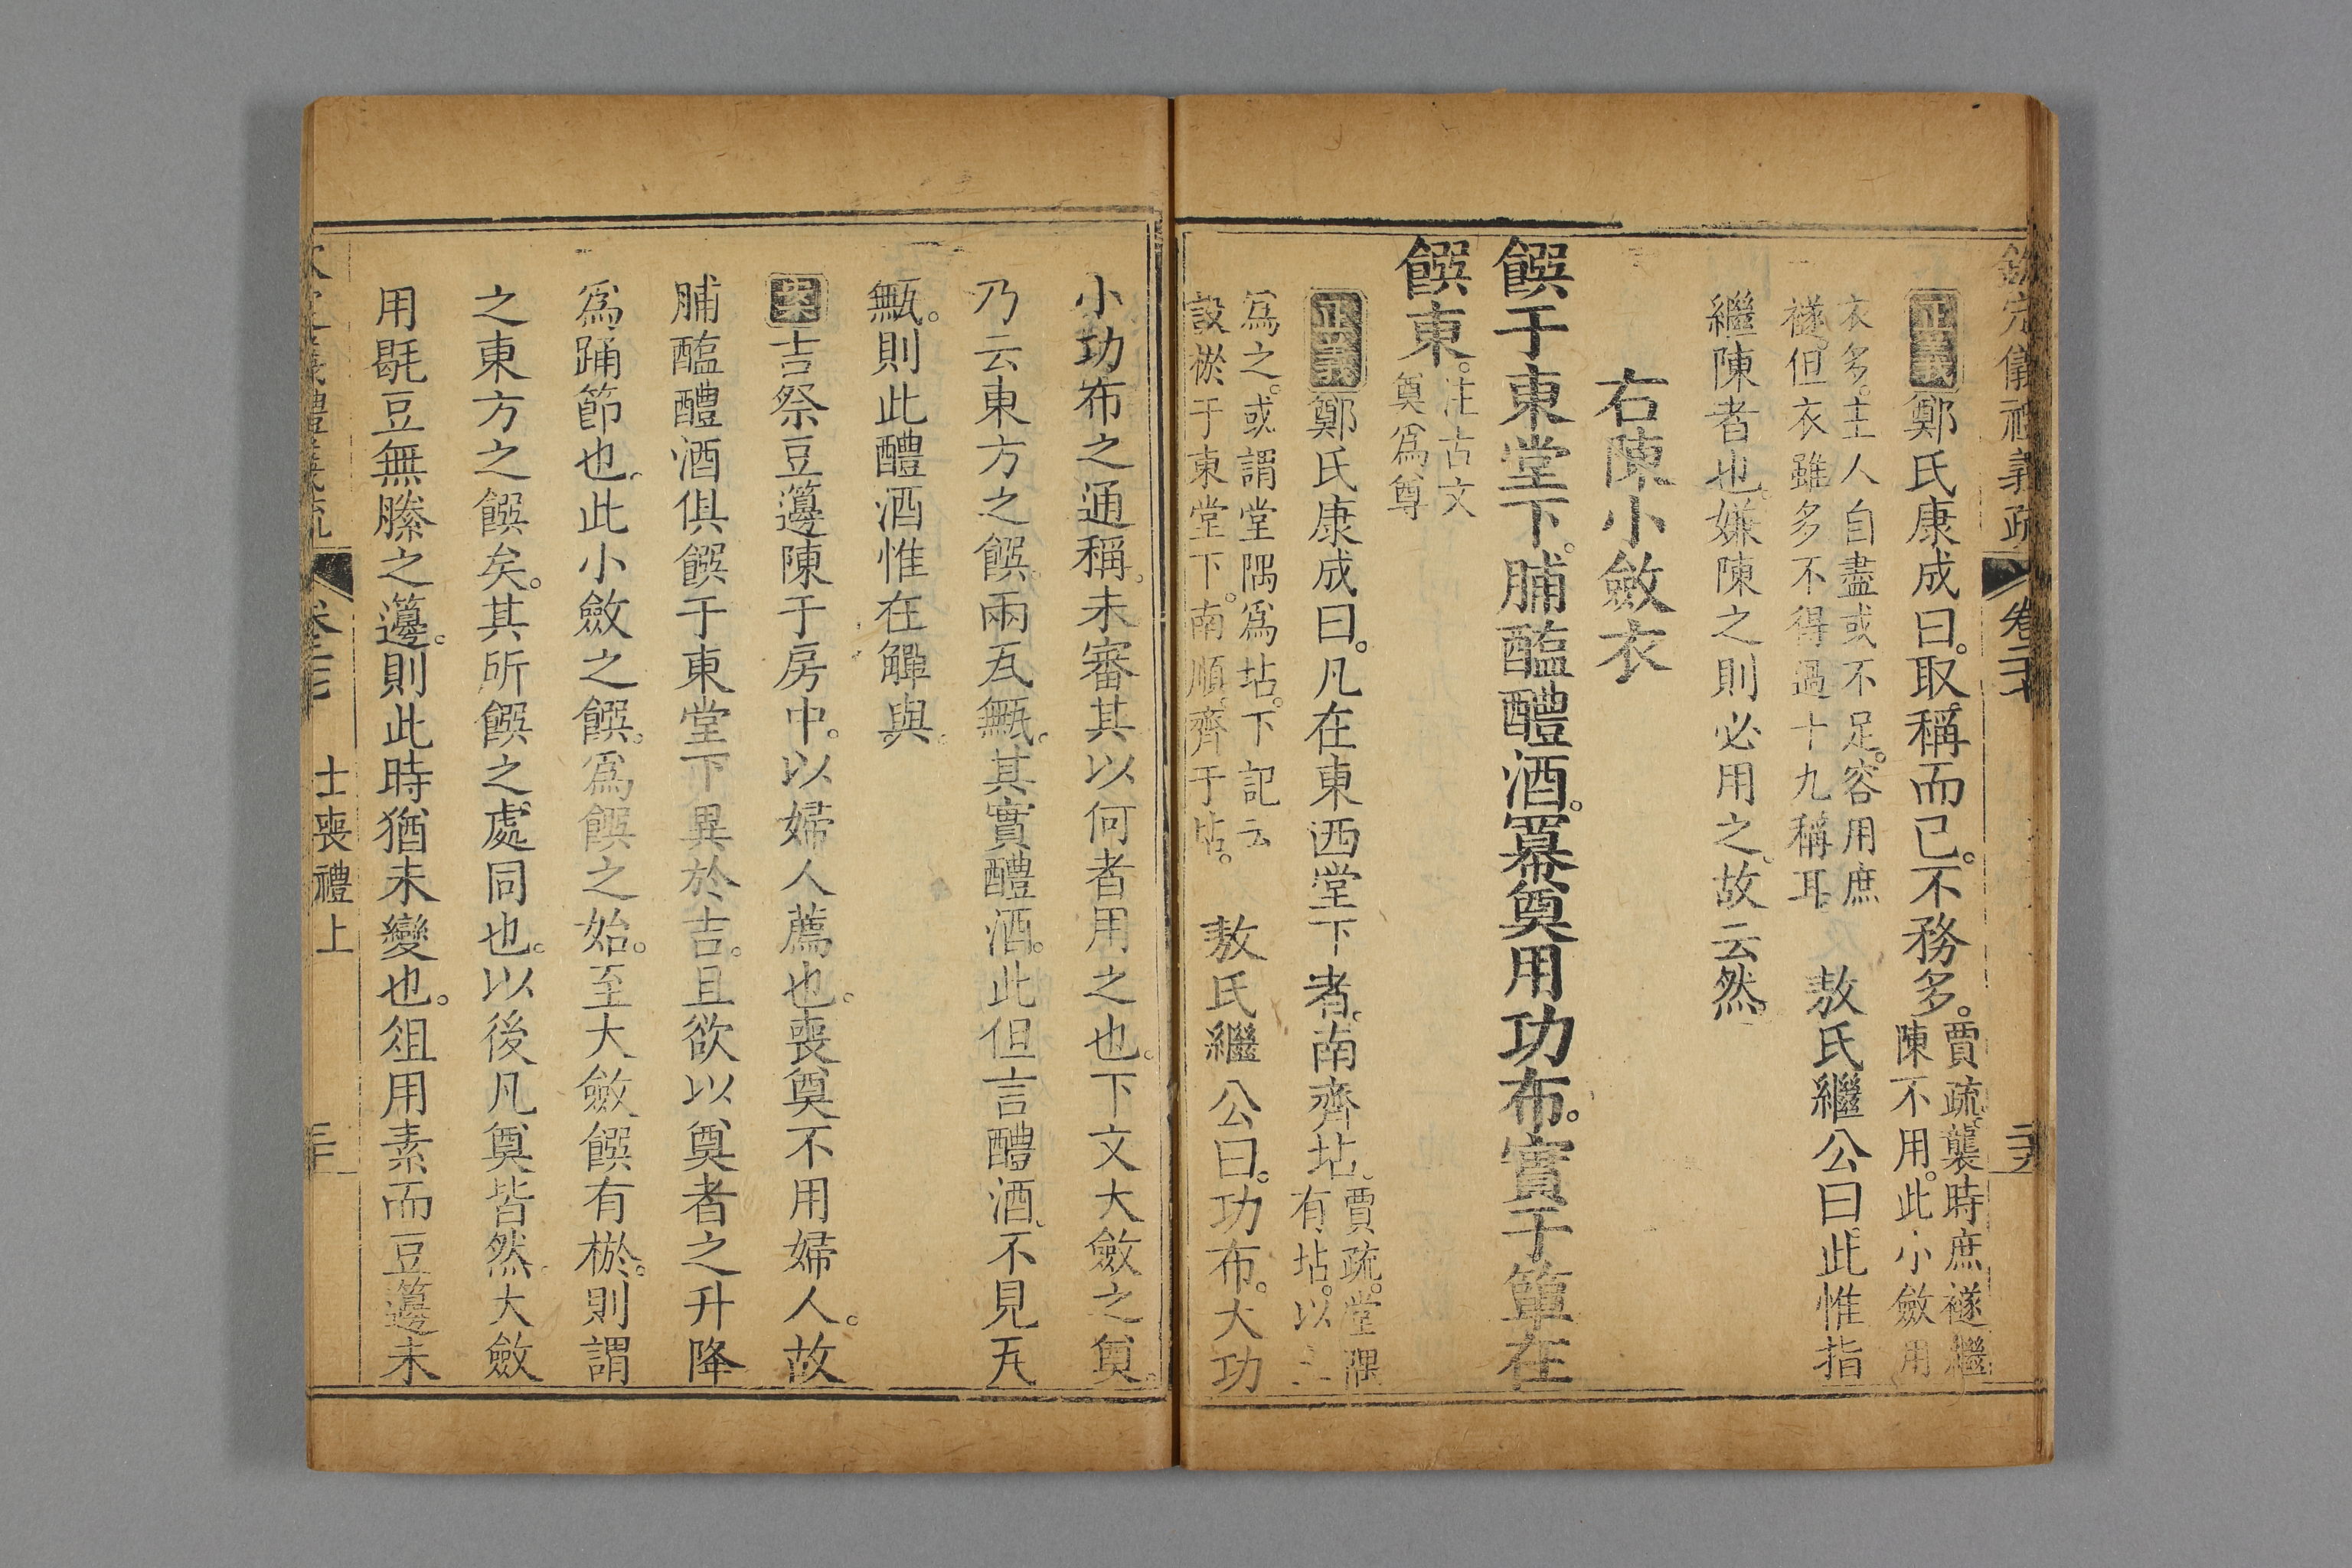 欽定儀禮義疏 卷二十七 二十九
正義鄭氏康成曰。取稱而已。不務多。賈疏。襲時庶襚繼
陳不用。此小斂用
衣多。主人自盡或不足。容用庶
襚。但衣雖多不得過十九稱耳 敖氏繼公曰。此惟指
繼陳者也。嫌陳之則必用之。故云然。
右陳小斂衣
饌于東堂下。脯醢醴酒。冪奠用功布。實于簞在
饌東。注古文
奠爲尊
正義鄭氏康成曰。凡在東西堂下者。南齊坫。賈疏。堂隅
有坫。以土
爲之。或謂堂隅爲坫。下記云
設棜于東堂下。南順。齊于坫。 敖氏繼公曰。功布。大功
小功布之通稱。未審其以何者用之也。下文大斂之奠。
乃云東方之饌。兩瓦甒。其實醴酒。此但言醴酒。不見瓦
甒。則此醴酒惟在觶與。
案吉祭豆籩陳于房中。以婦人薦也。喪奠不用婦人。故
脯醢醴酒俱饌于東堂下異於吉。且欲以奠者之升降
爲踊節也。此小斂之饌。爲饌之始。至大斂饌有棜。則謂
之東方之饌矣。其所饌之處同也。以後凡奠皆然。大斂
用毼豆無縢之籩。則此時猶未變也。俎用素而豆籩未
欽定儀禮義疏 卷二十七 士喪禮上 三十